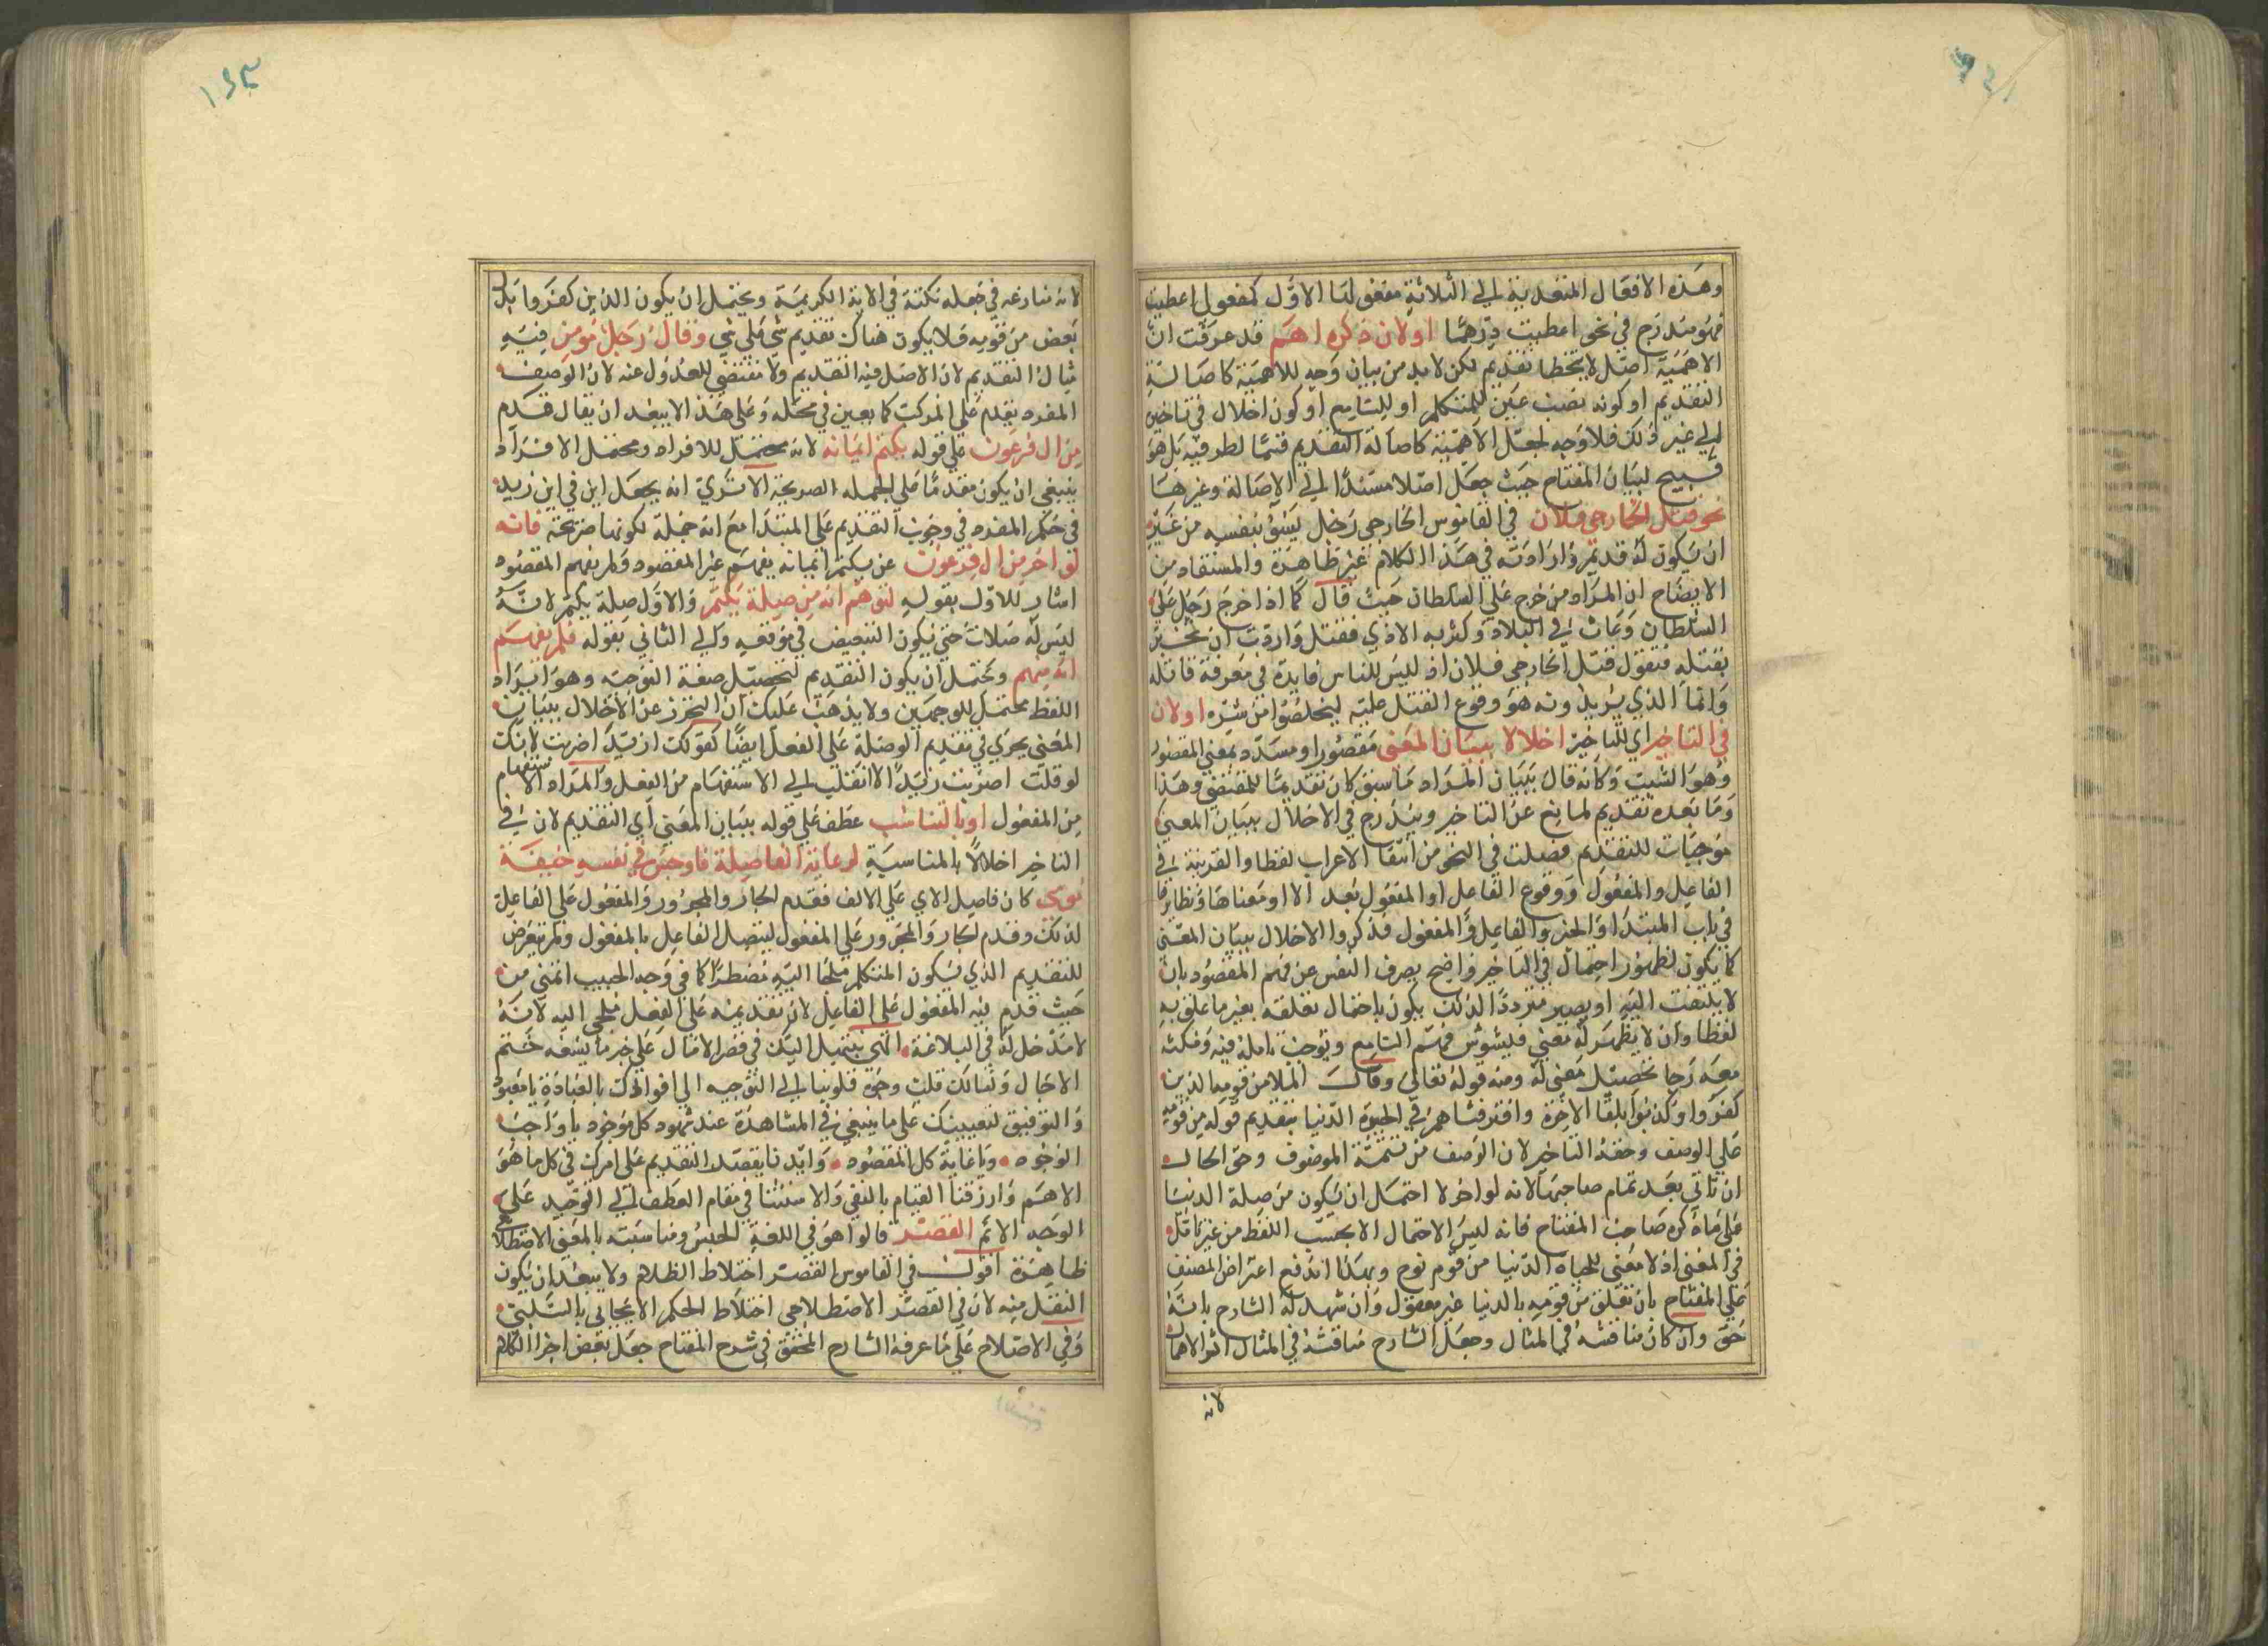 وهذه الافعال المتعدية الى الثلاثة مفعولها الاول كمفعولي اعطيت
فهو مندرج في نحو اعطيت درهما او لان ذكره اهم قد عرفت ان
الاهمية اصل لا يتخطا تقديم لكن لا بد من بيان وجه للاهمية كاصالة
التقديم او كونه نصب عين للمتكلم او للسامع او كون اخلال في تاخيره
الى غير ذلك فلا وجه لجعل الاهمية كاصالة التقديم قسما لطرفيه بل هو
قبيح لبيان المفتاح حيث جعل اصلا مستندا الى الاصالة وغيرها
نحو قتل الخارجي فلان في القاموس الخارجي رجل يسود بنفسه من غير
ان يكون له قديم وارادته في هذا الكلام غير ظاهرة والمستفاد من
الايضاح ان المراد من خرج على السلطان حيث قال كما اذا خرج رجل على
السلطان وعاث في البلاد وكثر به الاذي فقتل واردت ان تخبر
بقتله فتقول قتل الخارجي فلان اذ ليس للناس فايدة في معرفة قاتله
وانما الذي يريدونه هو وقوع القتل عليه ليخلصوا من شره او لان
في التاخير اي التاخير اخلالا ببيان المعنى مقصورا ومسدده بمعنى المقصود
وهو الشيت وكانه قال ببيان المراد ما سبق كان تقديما للمقتضى وهذا
وما بعده تقديم لمانع عن التاخير ويندرج في الاخلال ببيان المعنى
موجبات للتقديم فصلت في النحو من انتفا الاعراب لفظا والقرينة في
الفاعل والمفعول ووقوع الفاعل او المفعول بعد الا او معناها ونظايرها
في باب المبتدا والخبر والفاعل والمفعول فذكروا الاخلال ببيان المعنى
كما يكون لظهور احتمال في التاخير واضح يصرف النفس عن فهم المقصود بان
لا يلتفت اليه او يصير مترددا لذلك يكون باحتمال تعلقه بغير ما علق به
لفظا وان لا يظهر له معنى فيشوش فهم السامع وتوجب تامله فيه ومكثه
معه رجا تحصيل معنى له ومنه قوله تعالى وقال الملا من قومه الذين
كفروا وكذبوا بلقا الاخرة واترفناهم في الحيوة الدنيا بتقديم قوله من قومه
على الوصف وحقه التاخير لان الوصف من تتمة الموصوف وحق الحال
ان تاتي بعد تمام صاحبها لانه لو اخر لاحتمل ان يكون من صلة الدنيا
على ما ذكره صاحب المفتاح فانه ليس الاحتمال الا بحسب اللفظ من غير تامل
في المعنى اذ لا معنى للحياه الدنيا من قوم نوح وبهذا اندفع اعتراض المصنف
على المفتاح بان تعلق من قومه بالدنيا غير معقول وان شهد له الشارح بانه
حق وان كان مناقشه في المثال وجعل الشارح مناقشة في المثال اثر الاهمال
لانه
لانه منازعه في جعله نكتة في الاية الكريمة ويحتمل ان يكون الذين كفروا بدل
بعض من قومه فلا يكون هناك تقديم شي على شي وقال رجل مومن فيه
مثال التقديم لان الاصل فيه التقديم ولا مقتضي للعدول عنه لان الوصف
المفرد يقدم على المركب كما بعين في محله وعلى هذا لا يبعد ان يقال قدم
من ال فرعون على قوله يكتم ايمانه لانه محتمل للافراد ومحتمل الافراد
ينبغي ان يكون مقدما على الجمله الصريحة الا ترى انه يجعل اين في اين زيد
في حكم المفرد في وجوب التقديم على المبتدا مع انه جملة لكونها صريحة فانه
لو اخر من ال فرعون عن يكتم ايمانه يفهم غير المقصود ولم يفهم المقصود
اشار للاول بقوله لتوهم انه من صلة يكتم والاول صلة يكتم لانه
ليس له صلات حتى يكون التبعيض في موقعه والى الثاني بقوله فلم يفهم
انه منهم ويحتمل ان يكون التقديم لتحصيل صفة التوجيه وهو ايراد
اللفظ محتمل للوجهين ولا يذهب عليك ان التحرز عن الاخلال ببيان
المعنى يجري في تقديم الوصلة على الفعل ايضا كقولك ازيدا ضربت لانك
لو قلت اضربت زيدا لانقلب الى الاستفهام من الفعل والمراد الاستفهام
من المفعول او بالتناسب عطف على قوله ببيان المعنى اي التقديم لان في
التاخير اخلالا بالمناسبة لرعاية الفاصلة فاوجس في نفسه خيفة
موسى كان فاصل الاي على الالف فقدم الجار والمجرور والمفعول على الفاعل
لذلك وقدم الجار والمجرور على المفعول ليتصل الفاعل بالمفعول ولم يتعرض
للتقديم الذي يكون المتكلم ملجا اليه مضطرا كما في وجه الحبيب اتمنى من
حيث قدم فيه المفعول على الفاعل لان تقديمه على الفعل ملجي اليه لانه
لا مدخل له في البلاغة الهي بتبتيل اليك في قصر الامال على خير ما يسعه ختم
الاجال ونسالك قلب وجوه قلوبنا الى التوجيه الى افرادك بالعبادة يا معبود
والتوفيق لتعيينك على ما ينبغي في المشاهدة عند شهود كل موجود يا واجب
الوجود ويا غاية كل المقصود وايدنا بقصد التقديم على امرك في كل ما هو
الاهم وارزقنا القيام بالنفي والاستثنا في مقام العطف الى التوحيد على
الوجه الاتم القصر قالوا هو في اللغة الحبس ومناسبته بالمعنى الاصطلاحي
ظاهرة اقول في القاموس القصر اختلاط الظلام ولا يبعد ان يكون
النقل منه لان في القصر الاصطلاحي اختلاط الحكم الايجابي بالسلبي
وفي الاصلاح على ما عرفه الشارح المحقق في شرح المفتاح جعل بعض اجزا الكلام